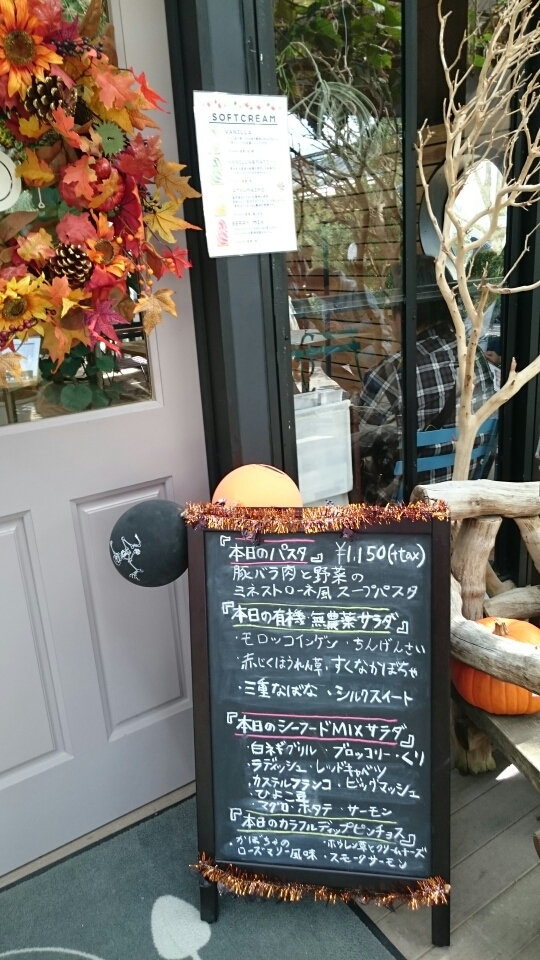 SOFTCREAM
VANILLA
BERRY MIX
『本日のパスタ』 ¥1,150(+tax)
豚バラ肉と野菜の
ミネストローネ風 スープパスタ
『本日の有機・無農薬サラダ』
・モロッコインゲン ・ちんげんさい
・赤じくほうれん草 ・すくなかぼちゃ
・三重なばな ・シルクスイート
『本日のシーフードMIXサラダ』
・白ネギグリル ・ブロッコリー ・くり
・ラディッシュ ・レッドキャベツ
・カステルフランコ ・ビッグマッシュ
・ひよこ豆
・マグロ・ホタテ ・サーモン
『本日のカラフルディップピンチョス』
・かぼちゃの ・ホウレン草とクリームチーズ
ローズマリー風味 ・スモークサーモン